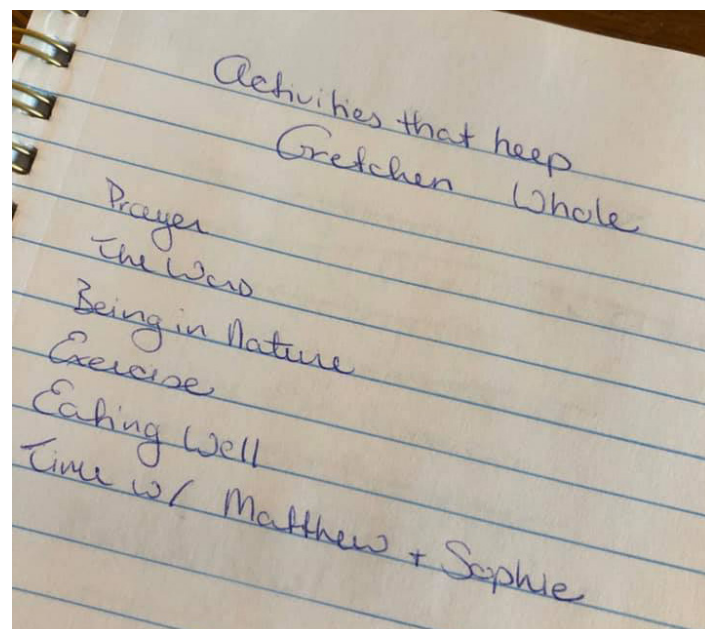 Activities that keep
Gretchen Whole
Prayer
The Word
Being in Nature
Exercise
Eating Well
Time w/ Matthew + Sophie